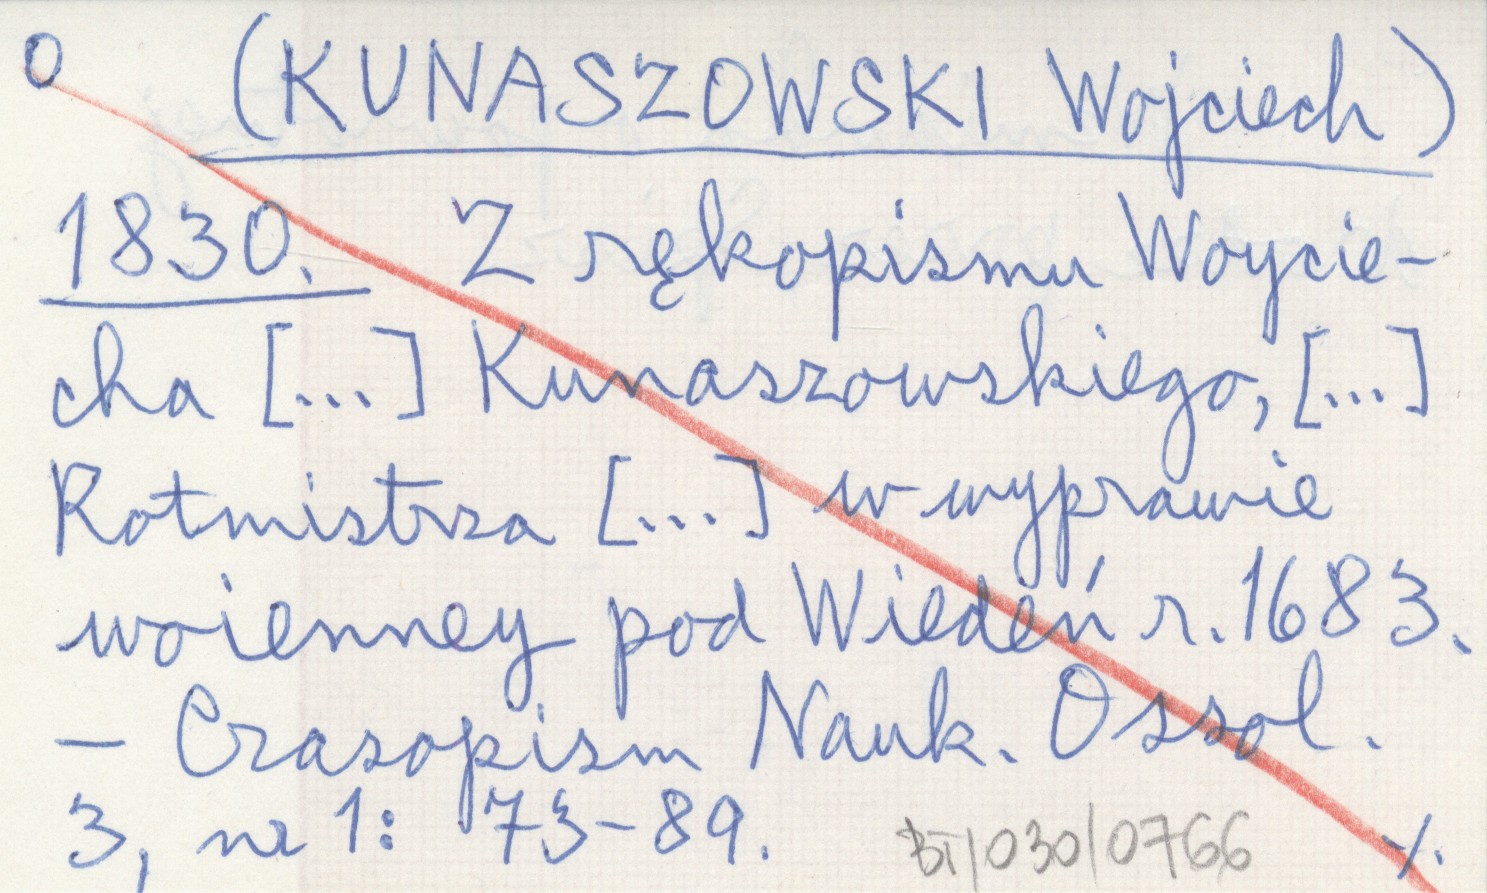 O (KUNASZOWSKI Wojciech)
1830. Z rękopismu Woycie-
cha [...] Kunaszowskiego, [...]
Rotmistrza [...] w wyprawie
woienney pod Wiedeń r. 1683.
— Czasopism Nauk. Ossol.
3, nr 1: 73-89.
BT/030/0766 ./.